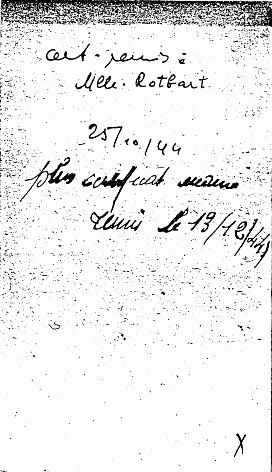 cert. remis à
Melle. Rotbart
25/10/44
plus certificat
remis le 19/12/44
X